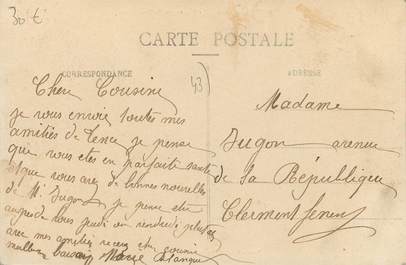 30 €
CARTE POSTALE
CORRESPONDANCE
ADRESSE
43
Chère Cousine
je vous envoie toutes mes
amitiés de je pense
que vous etes en parfaite santé
et que vous avez de bonne nouvelles
de Mr Dugon je pense etre
auprès de vous jeudi en vendredi
avec mes amitiés recevez chere cousine
meilleurs baisers Marie
Madame
Dugon avenue
de la République
Clermont